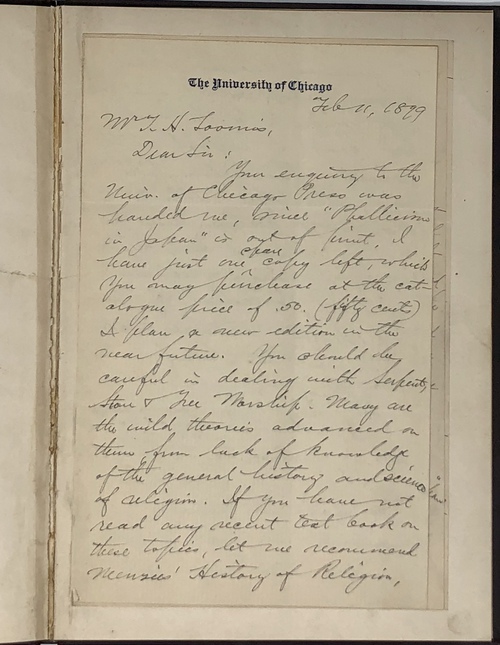 The University of Chicago
Feb 11, 1899
Mr T. H. Loomis,
Dear Sir:
Your enquiry to the
Univ. of Chicago Press was
handed me, since "Phallicism
in Japan" is out of print, I
have just one spare copy left, which
you may purchase at the cat-
alogue price of .50. (fifty cents)
I plan, a new edition in the
near future. You should be
careful in dealing with Serpent,
Stone & Tree Worship. Many are
the wild theories advanced on
them from lack of knowledge
of the general history and science
of religion. If you have not
read any recent text book on
these topics, let me recommend
Menzies' History of Religion,